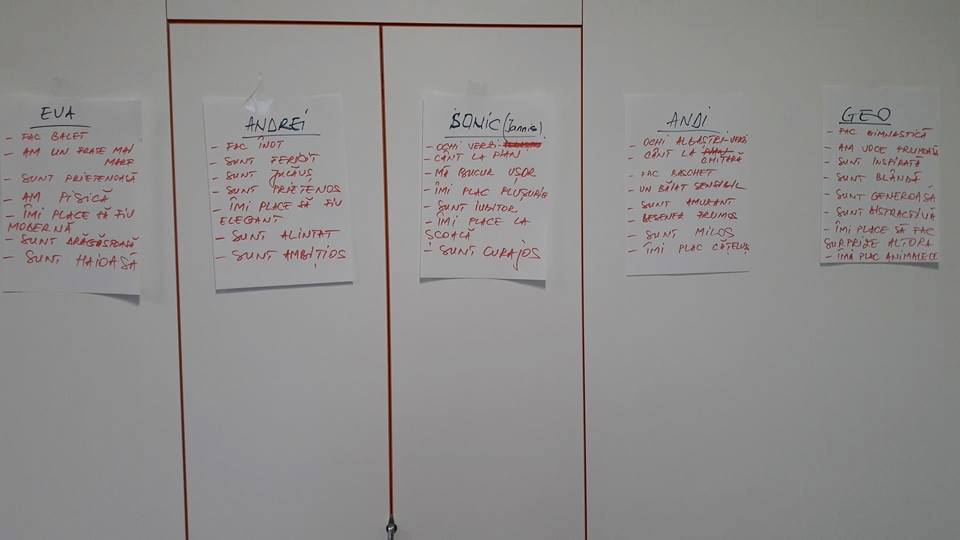 EVA
- FAC BALET
- AM UN FRATE MAI
MARE
- SUNT PRIETENOASĂ
- AM PISICĂ
- ÎMI PLACE SĂ FIU
MODERNĂ
- SUNT DRĂGĂSTOASĂ
- SUNT HAIOASĂ
ANDREI
- FAC ÎNOT
- SUNT FERICIT
- SUNT JUCĂUȘ
- SUNT PRIETENOS
- ÎMI PLACE SĂ FIU
ELEGANT
- SUNT ALINTAT
- SUNT AMBIȚIOS
SONIC (Jannis)
- OCHI VERZI
- CÂNT LA PIAN
- MĂ BUCUR UȘOR
- ÎMI PLAC PLUȘURILE
- SUNT IUBITOR
- ÎMI PLACE LA
ȘCOALĂ
- SUNT CURAJOS
ANDI
- OCHI ALBAȘTRI-VERZI
- CÂNT LA PIAN
CHITARĂ
- FAC BASCHET
- UN BĂIAT SENSIBIL
- SUNT AMUZANT
- DESENEZ FRUMOS
- SUNT MILOS
- ÎMI PLAC CĂȚELUȘ
GEO
- FAC GIMNASTICĂ
- AM VOCE FRUMOASĂ
- SUNT INSPIRATĂ
- SUNT BLÂNDĂ
- SUNT GENEROASĂ
- SUNT DISTRACTIVĂ
- ÎMI PLACE SĂ FAC
SURPRIZE ALTORA
- ÎMI PLAC ANIMALELE